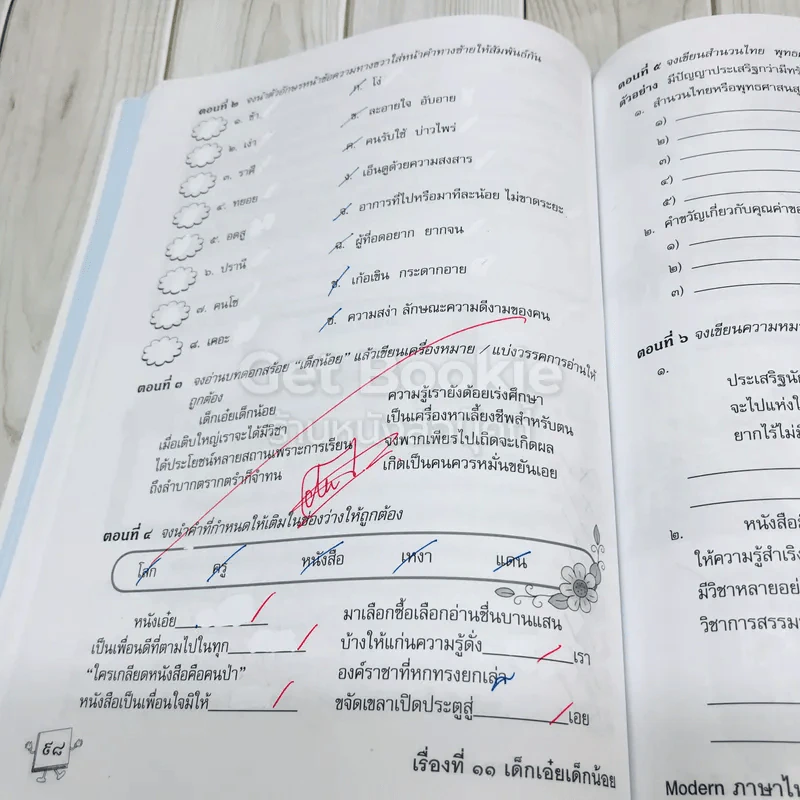 ตอนที่ ๒ จงนำตัวอักษรหน้าข้อความทางขวาใส่หน้าคำทางซ้ายให้สัมพันธ์กัน
๑. ช้า ก. โง่
๒. เง่า ข. ละอายใจ อับอาย
๓. ราศี ค. คนรับใช้ บ่าวไพร่
๔. ทยอย ง. เอ็นดูด้วยความสงสาร
๕. อดสู จ. อาการที่ไปหรือมาทีละน้อย ไม่ขาดระยะ
๖. ปรานี ฉ. ผู้ที่อดอยาก ยากจน
๗. คนโซ ช. เก้อเขิน กระดากอาย
๘. เคอะ ซ. ความสง่า ลักษณะความดีงามของคน
ตอนที่ ๓ จงอ่านบทดอกสร้อย "เด็กน้อย" แล้วเขียนเครื่องหมาย / แบ่งวรรคการอ่านให้
ถูกต้อง
เด็กเอ๋ยเด็กน้อย ความรู้เรายังด้อยเร่งศึกษา
เมื่อเติบใหญ่เราจะได้มีวิชา เป็นเครื่องหาเลี้ยงชีพสำหรับตน
ได้ประโยชน์หลายสถานเพราะการเรียน จงพากเพียรไปเถิดจะเกิดผล
ถึงลำบากตรากตรำก็จำทน เกิดเป็นคนควรหมั่นขยันเอย
ตอนที่ ๔ จงนำคำที่กำหนดให้เติมในช่องว่างให้ถูกต้อง
โลก ครู หนังสือ เหงา แดน
หนังเอ๋ย มาเลือกซื้อเลือกอ่านชื่นบานแสน
เป็นเพื่อนดีที่ตามไปในทุก บ้างให้แก่นความรู้ดั่ง เรา
"ใครเกลียดหนังสือคือคนป่า" องค์ราชาที่หกทรงยกเล่า
หนังสือเป็นเพื่อนใจมิให้ ขจัดเขลาเปิดประตูสู่ เอย
๙๘
เรื่องที่ ๑๑ เด็กเอ๋ยเด็กน้อย
Get Bookie
ตอนที่ ๕ จงเขียนสำนวนไทย
ตัวอย่าง มีปัญญาประเสริฐกว่ามีทรั
๑. สำนวนไทยหรือพุทธศาสนสุ
๑)
๒)
๓)
๔)
๕)
๒. คำขวัญเกี่ยวกับคุณค่าขอ
๑)
๒)
๓)
ตอนที่ ๖ จงเขียนความหม
๑. ประเสริฐนั
จะไปแห่งใ
ยากไร้ไม่มี
๒. หนังสือ
ให้ความรู้สำเริง
มีวิชาหลายอย่
วิชาการสรรม
Modern ภาษาไท